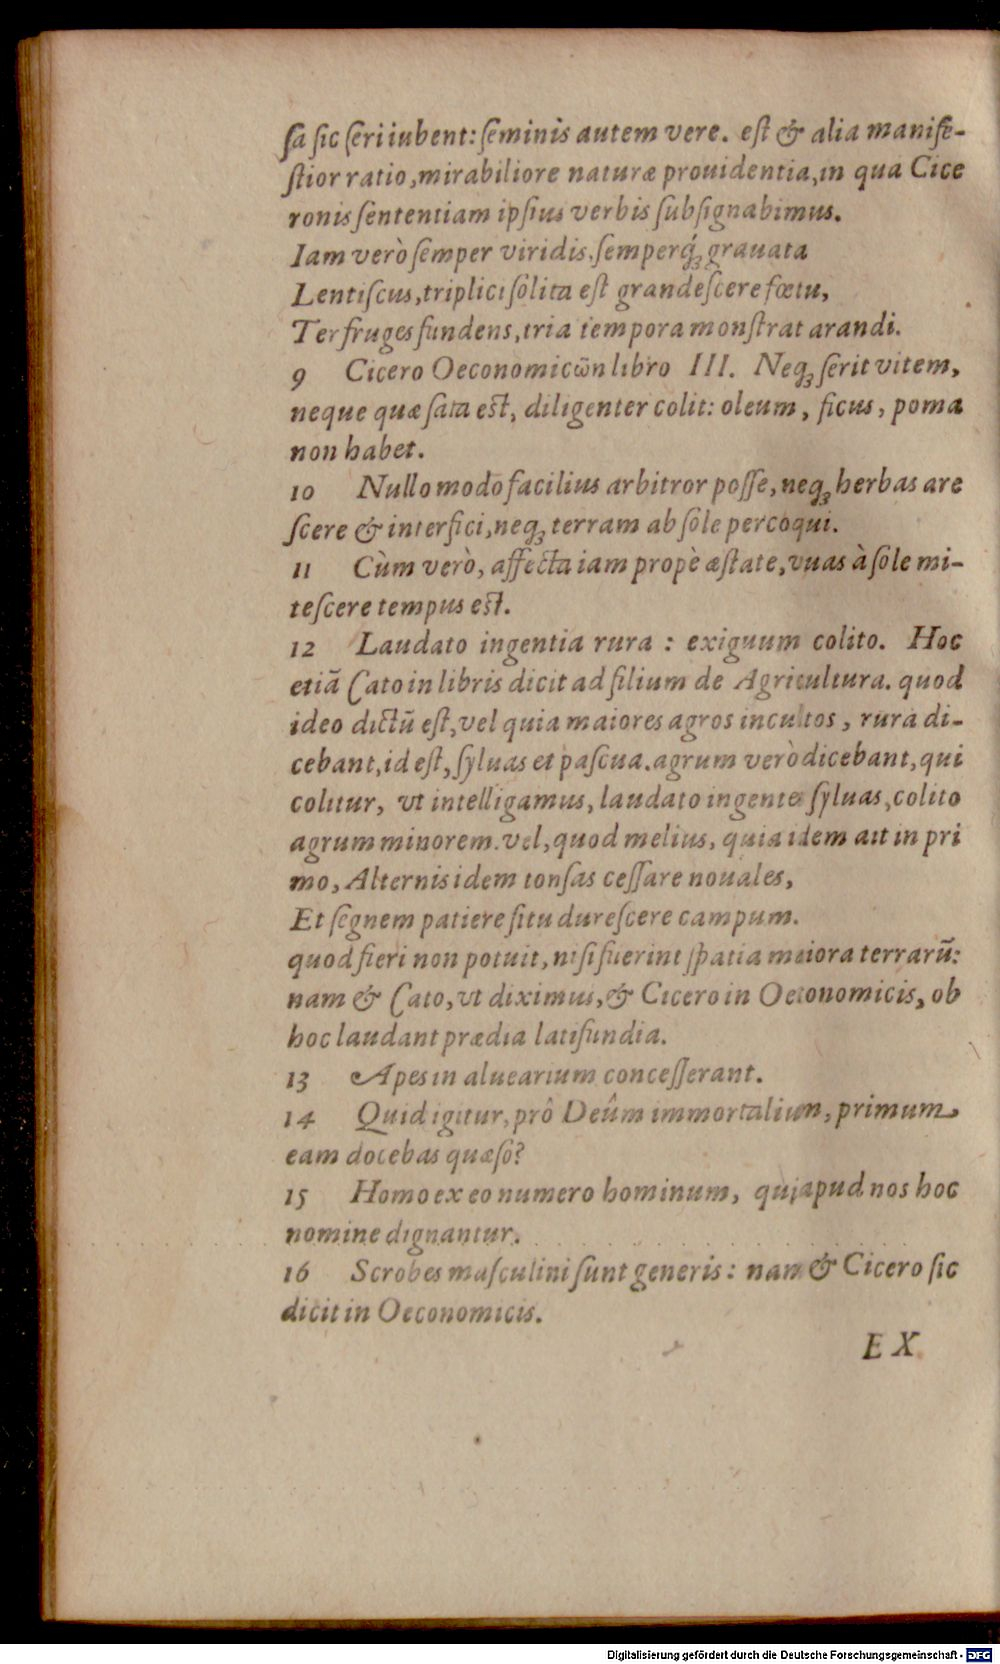 ſa ſic ſeri iubent: ſeminis autem vere. eſt & alia manife-
ſtior ratio, mirabiliore naturæ prouidentia, in qua Cice
ronis ſententiam ipſius verbis ſubſignabimus.
Iam verò ſemper viridis, ſemperq́ꝫ grauata
Lentiſcus, triplici ſolita eſt grandeſcere fœtu,
Ter fruges fundens, tria tempora monſtrat arandi.
9 Cicero Oeconomicῶn libro III. Neqꝫ ſerit vitem,
neque quæ ſata est, diligenter colit: oleum, ficus, poma
non habet.
10 Nullo modo facilius arbitror poſſe, neqꝫ herbas are
ſcere & interfici, neqꝫ terram ab ſole percoqui.
11 Cùm verò, affecta iam propè æſtate, vuas à ſole mi-
teſcere tempus est.
12 Laudato ingentia rura : exiguum colito. Hoc
etiã Cato in libris dicit ad filium de Agricultura. quod
ideo dictũ eſt, vel quia maiores agros incultos, rura di-
cebant, id eſt, ſyluas et paſcua. agrum verò dicebant, qui
colitur, vt intelligamus, laudato ingentes ſyluas, colito
agrum minorem. vel, quod melius, quia idem ait in pri
mo, Alternis idem tonſas ceſſare nouales,
Et ſegnem patiere ſitu dureſcere campum.
quod fieri non potuit, niſi fuerint ſpatia maiora terrarũ:
nam & Cato, vt diximus, & Cicero in Oeconomicis, ob
hoc laudant prædia latifundia.
13 Apes in aluearium conceſſerant.
14 Quid igitur, prô Deûm immortalium, primum
eam docebas quæſo?
15 Homo ex eo numero hominum, qui apud nos hoc
nomine dignantur.
16 Scrobes maſculini ſunt generis: nam & Cicero ſic
dicit in Oeconomicis.
EX
Digitalisierung gefördert durch die Deutsche Forschungsgemeinschaft - DFG